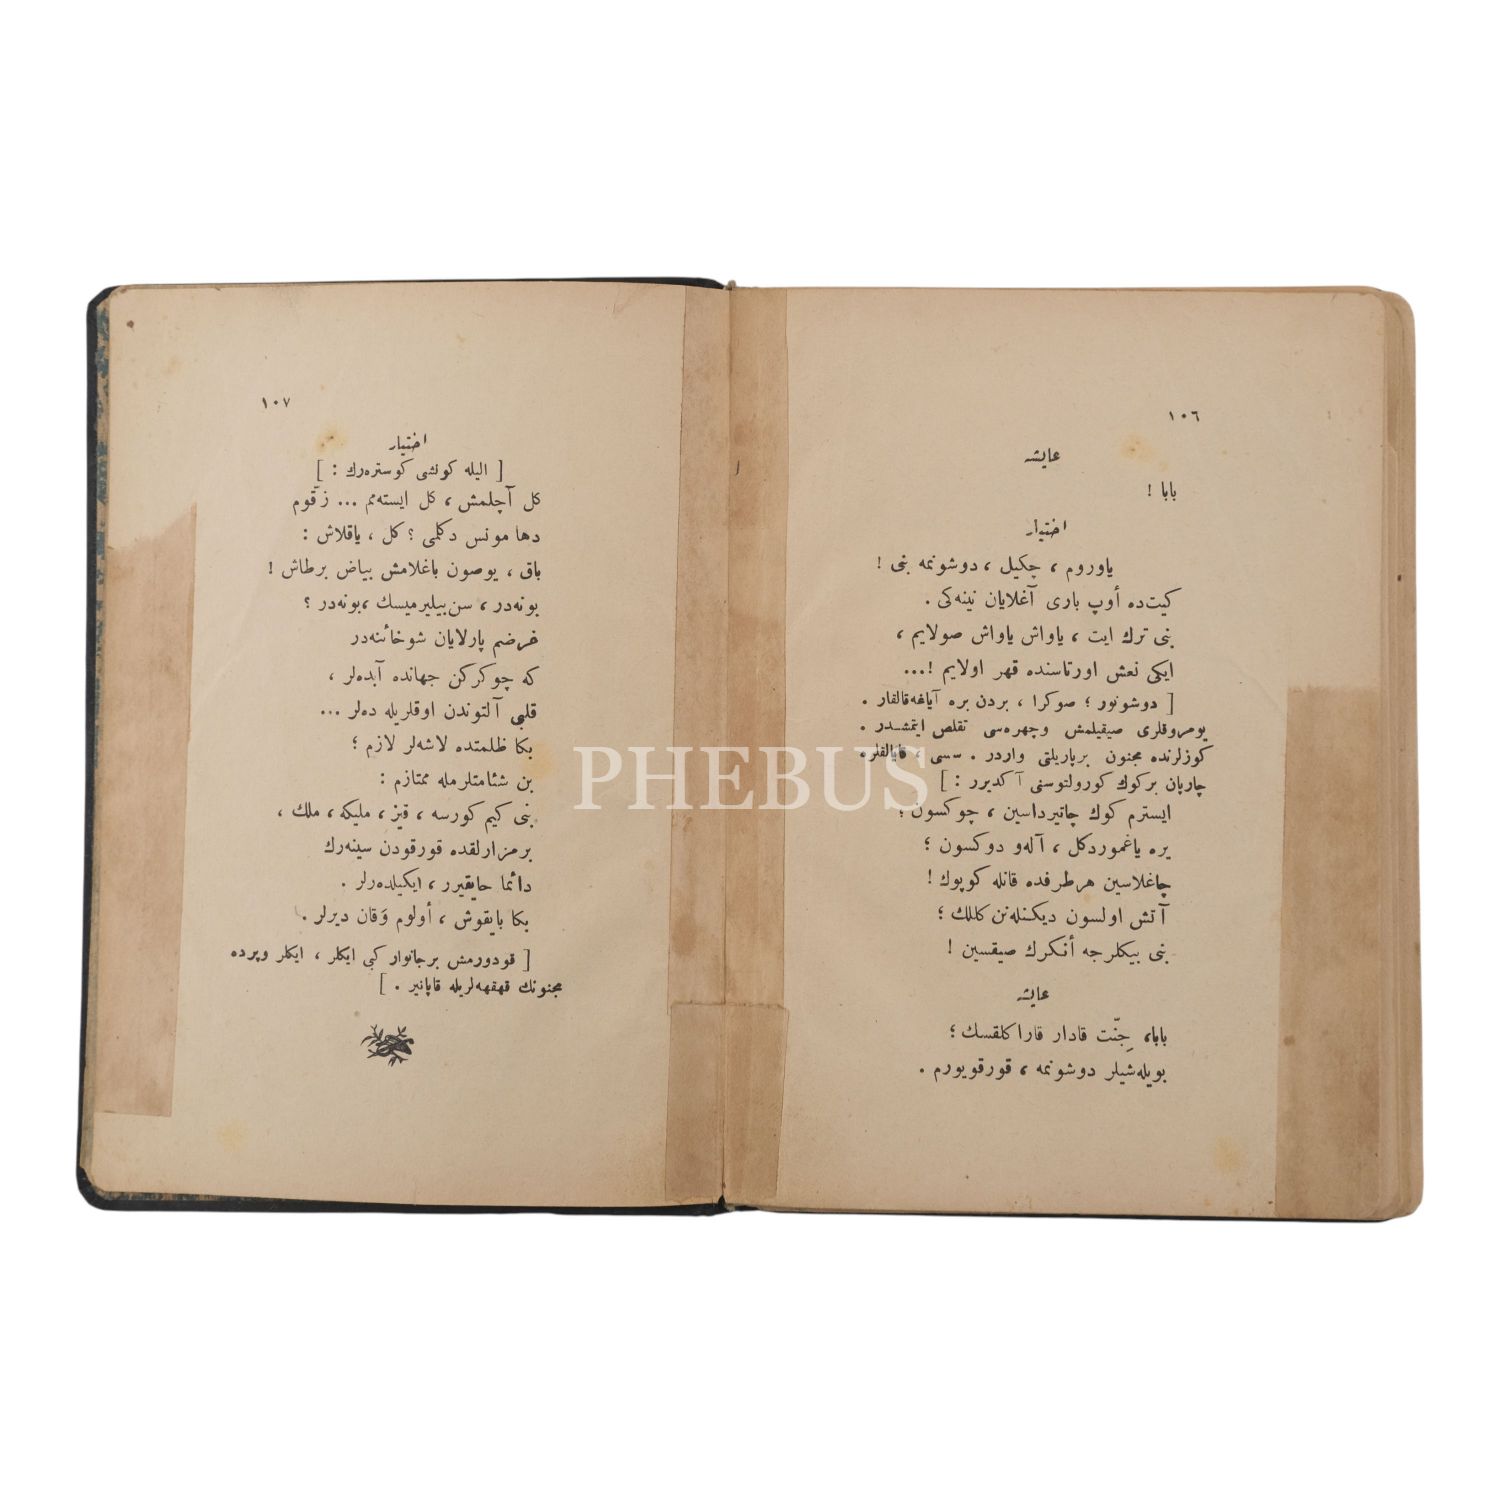 ١٠٦
عايشه
بابا !
اختيار
ياوروم ، چكيل ، دوشونمه بنى !
كيت‌ده أوپ بارى آغلايان نينه‌كى .
بنى ترك ايت ، ياواش ياواش صولايم ،
ايكى نعش اورتاسنده قهر اولايم !...
[ دوشونور ؛ صوكرا ، بردن بره آياغه‌قالقار .
يومروقلرى صيقيلمش وچهره‌سى تقلص ايتمشدر .
كوزلرنده مجنون برپاريلتى واردر . سسى ، قايالقلره
چارپان بركوك كورولتوسنى آكديرر : ]
ايسترم كوك چاتيرداسين ، چوكسون ؛
يره ياغموردكل ، آلەو دوكسون ؛
چاغلاسين هرطرفده قانله كوپوك !
آتش اولسون ديكنلەنن كللك ؛
بنى بيكلرجه أنكرك صيقسين !
عايشه
بابا، جِنّت قادار قاراكلقسك ؛
بويله‌شيلر دوشونمه ، قورقويورم .
١٠٧
اختيار
[ اليله كونشى كوستره‌رك : ]
كل آچلمش ، كل ايسته‌مم ... زقّوم
دها مونس دكلمى ؟ كل ، ياقلاش :
باق ، يوصون باغلامش بياض برطاش !
بونه‌در ، سن‌بيليرميسك ،بونه‌در ؟
خرضم پارلايان شوخائنه‌در
كه چوكركن جهانده آبده‌لر ،
قلبى آلتوندن اوقلريله ده‌لر ...
بكا ظلمتده لاشه‌لر لازم ؛
بن شئامتلرمله ممتازم :
بنى كيم كورسه ، قيز ، مليكه ، ملك ،
برمزارلقده قورقودن سينه‌رك
دائما حايقيرر ، ايكيلده‌رلر .
بكا بايقوش ، أولوم وَقان ديرلر .
[ قودورمش برجانوار كبى ايكلر ، ايكلر وپرده
مجنونك قهقهه‌لريله قاپانير . ]
PHEBUS